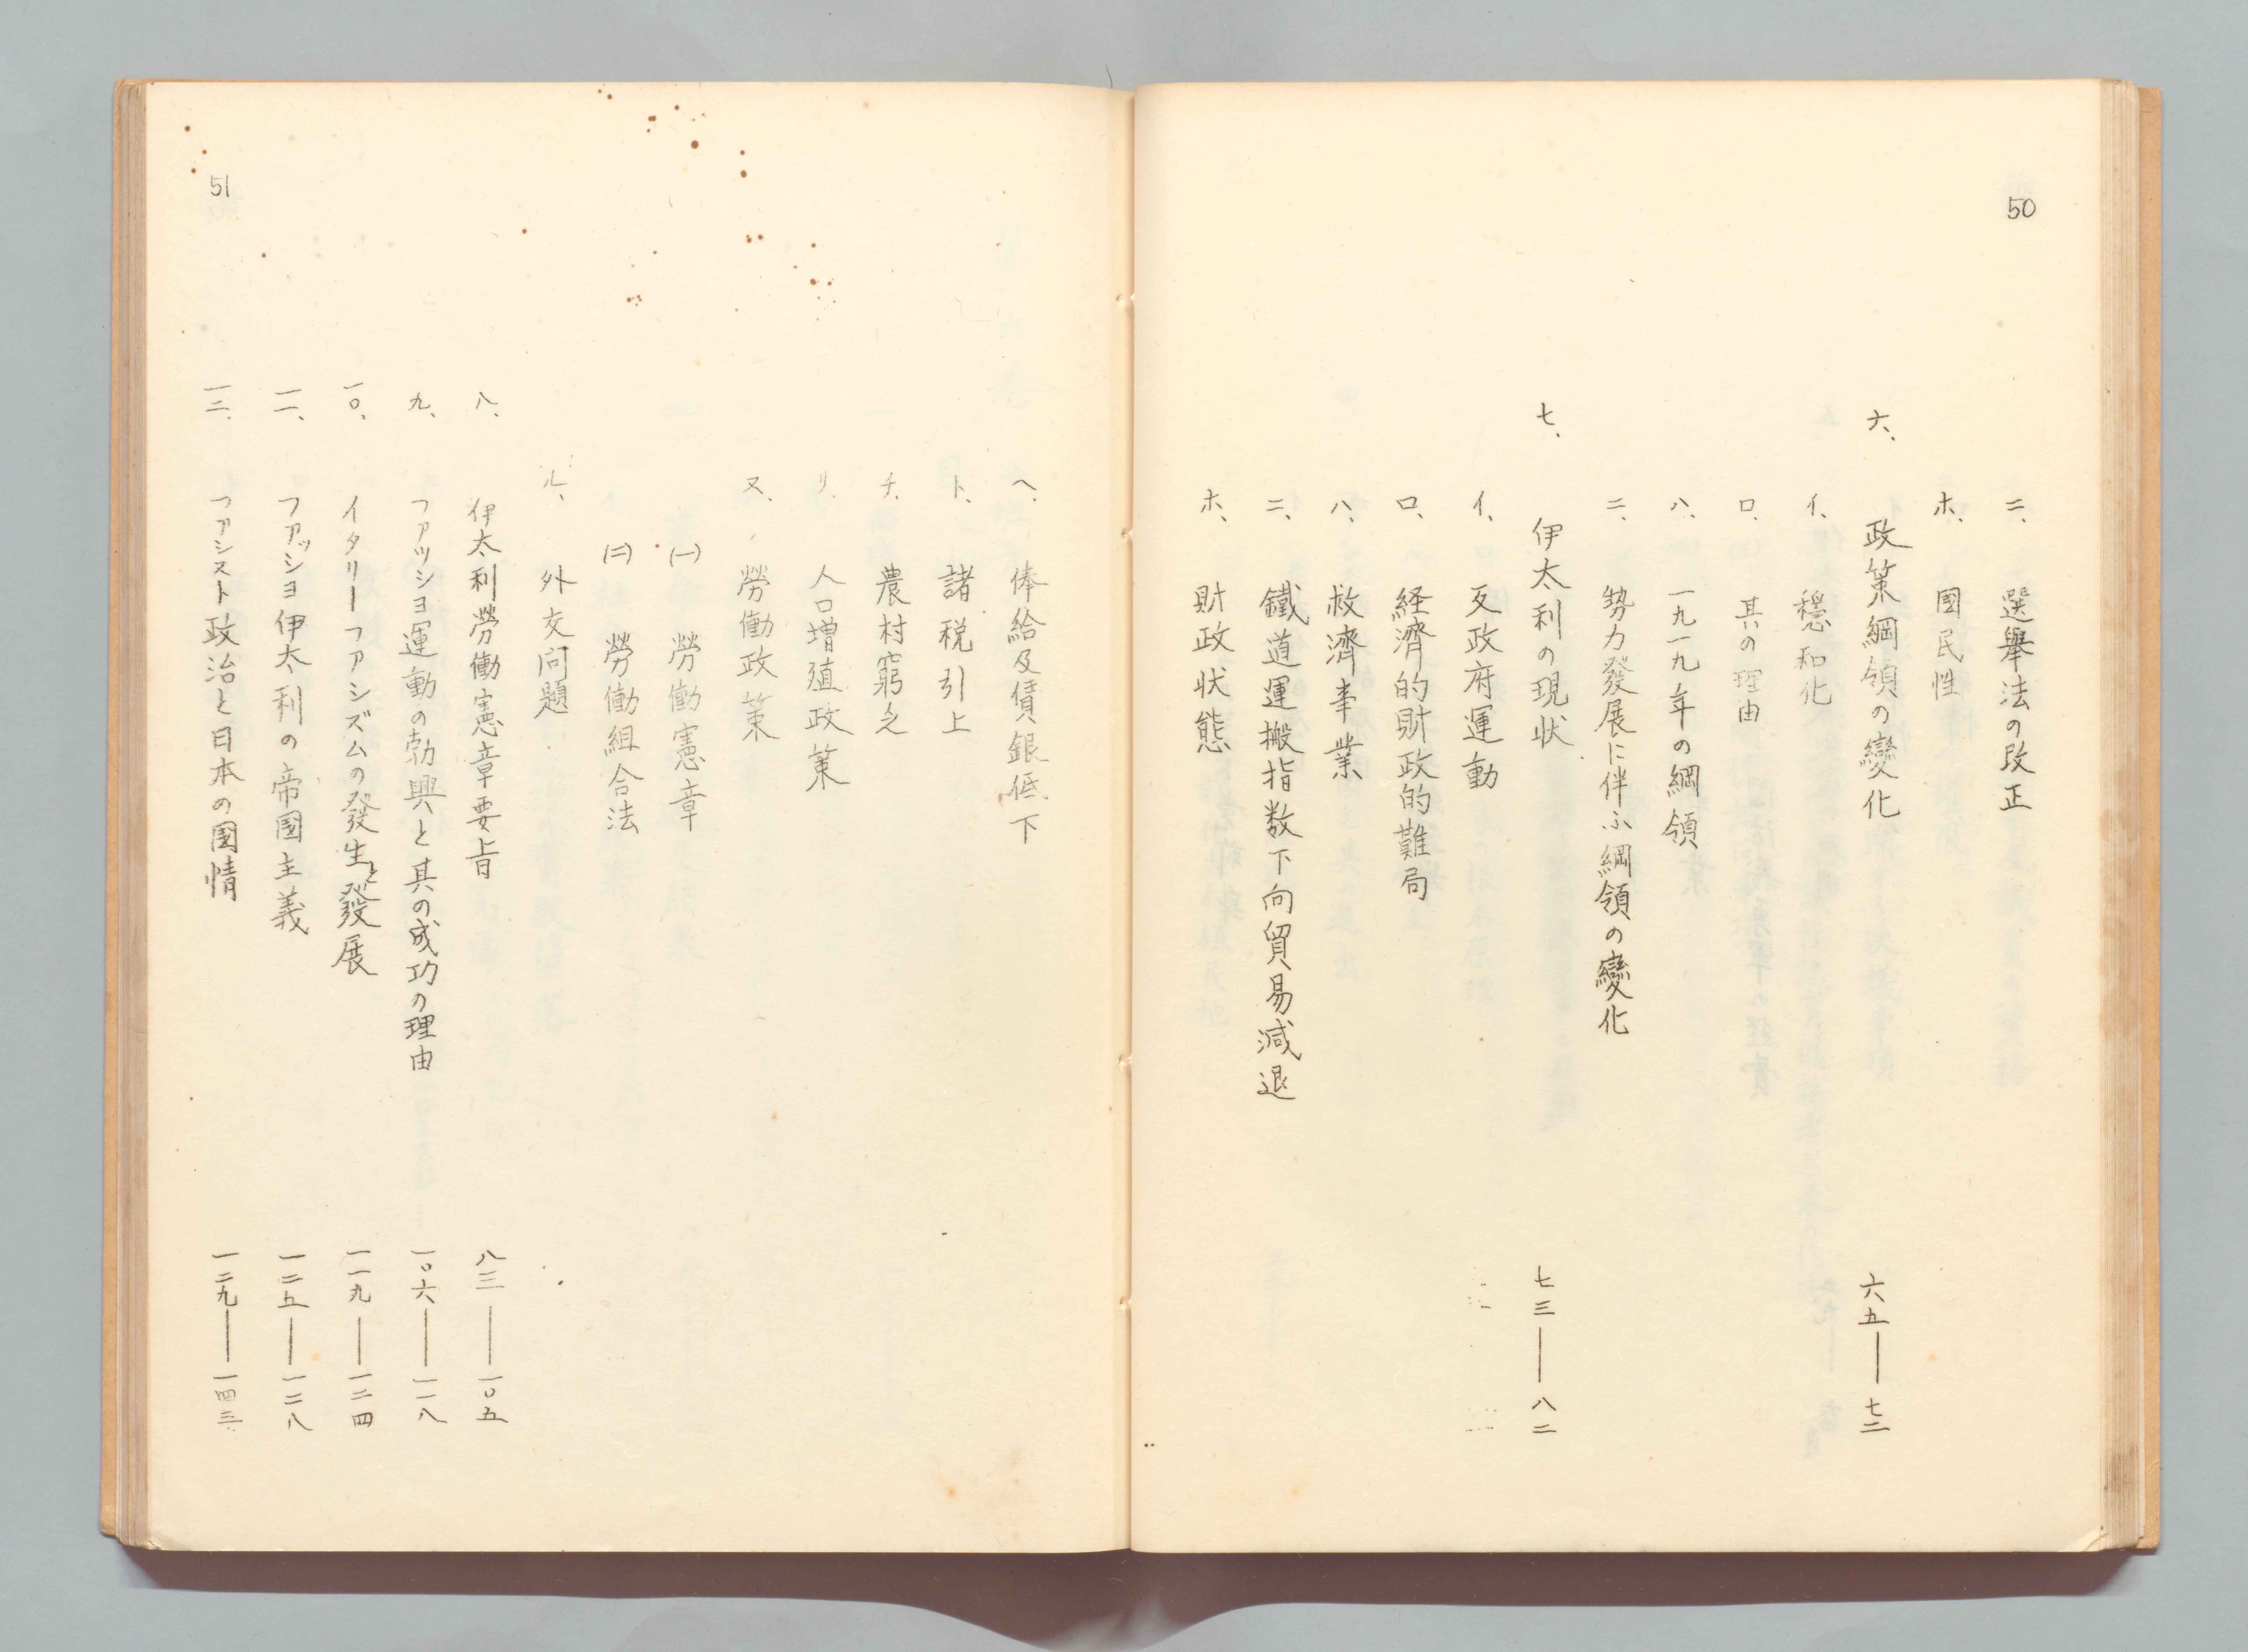 50
ニ、選擧法の改正
ホ、國民性
六、政策綱領の變化 六五―七二
イ、穏和化
ロ、其の理由
ハ、一九一九年の綱領
ニ、勢力發展に伴ふ綱領の變化
七、伊太利の現状 七三―八二
イ、反政府運動
ロ、経濟的財政的難局
ハ、救濟事業
ニ、鐵道運搬指数下向貿易減退
ホ、財政状態
ヘ、俸給及賃銀低下
ト、諸税引上
チ、農村窮乏
リ、人口増殖政策
ヌ、勞働政策
(一)勞働憲章
(二)勞働組合法
ル、外交问題
八、伊太利勞働憲章要旨 八三―一〇五
九、ファッショ運動の勃興と其の成功の理由 一〇六―一一八
一〇、イタリーファシズムの發生と發展 一一九―一二四
一一、ファッショ伊太利の帝國主義 一二五―一二八
一二、ファシスト政治と日本の國情 一二九―一四三
51